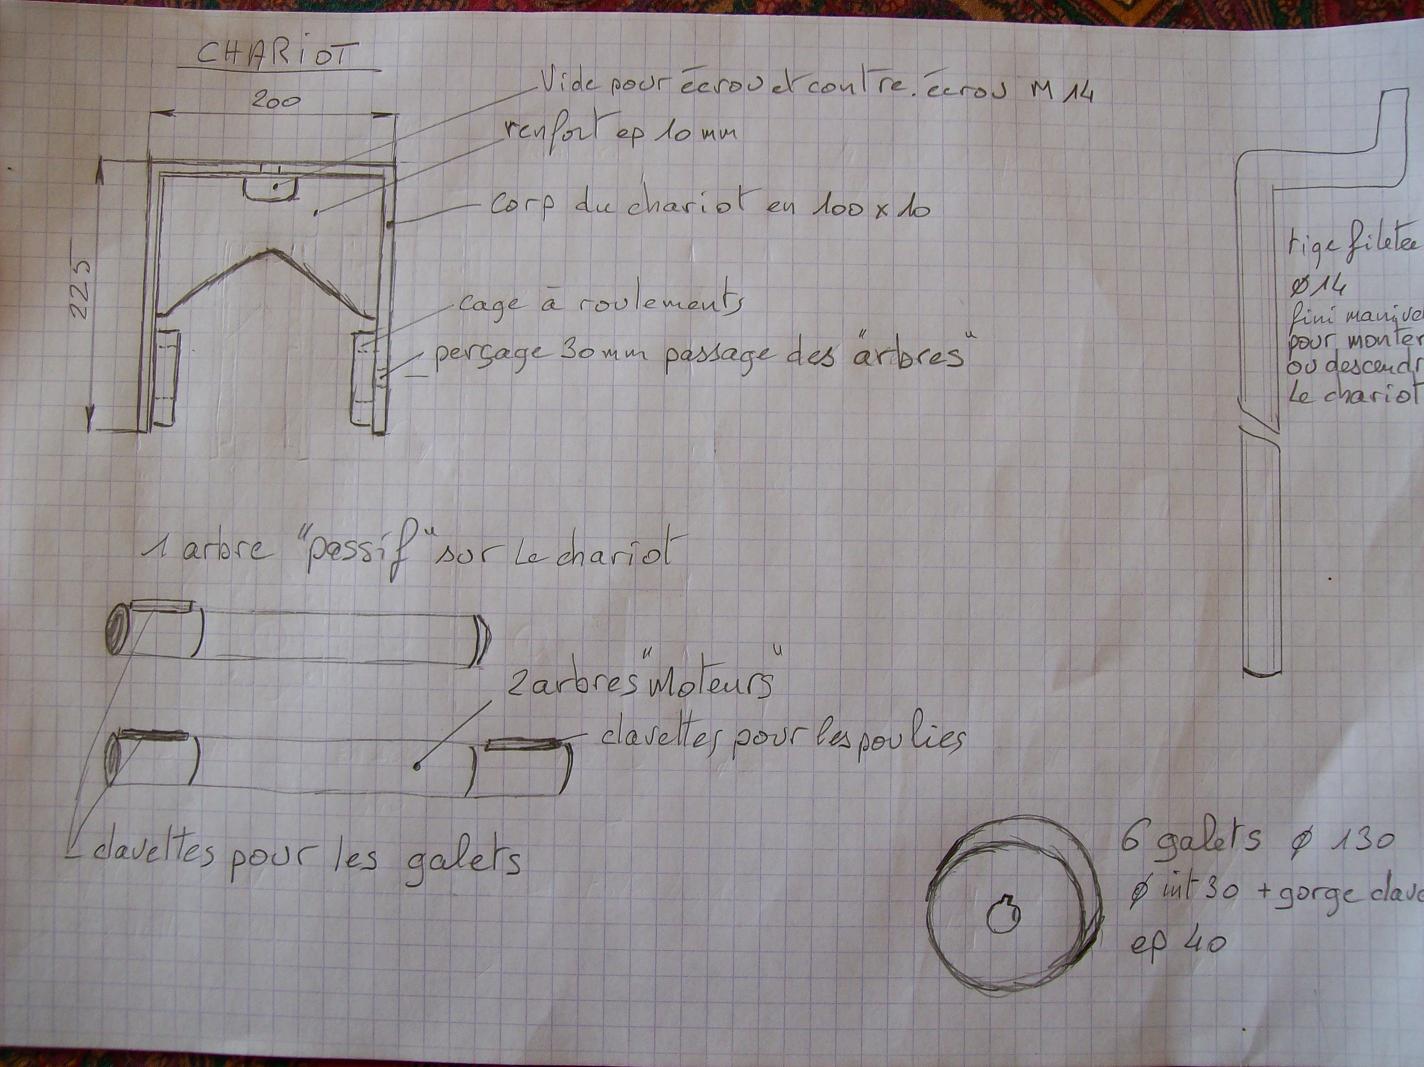 CHARiOT
200
Vide pour écrou et contre.écrou M 14
renfort ep 10mm
225
corp du chariot en 100 x 10
cage à roulements
perçage 30mm passage des "arbres"
tige filetée
ø14
fini
pour monter
ou
Le chariot
1 arbre "passif" sur Le chariot
2 arbres "Moteurs"
clavettes pour les poulies
clavettes pour les galets
6 galets ø 130
ø int 30 + gorge
ep 40